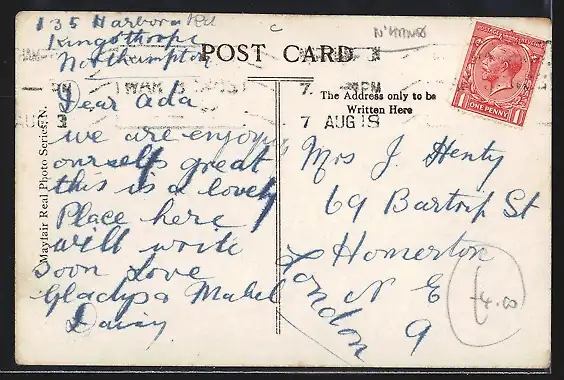 135 Harborough Rd
Kingsthorpe
Northampton
Dear Ada
we are enjoying
ourselfs great
this is a lovely
Place here
will write
soon love
Gladys & Mabel
Daisy
Mayfair Real Photo Series, N.
POST CARD
N'HANTS
The Address only to be
Written Here
7 PM
7 AUG 18
ONE PENNY
Mrs J. Henty
69 Bartrip St
Homerton
London N E
9
£4.00